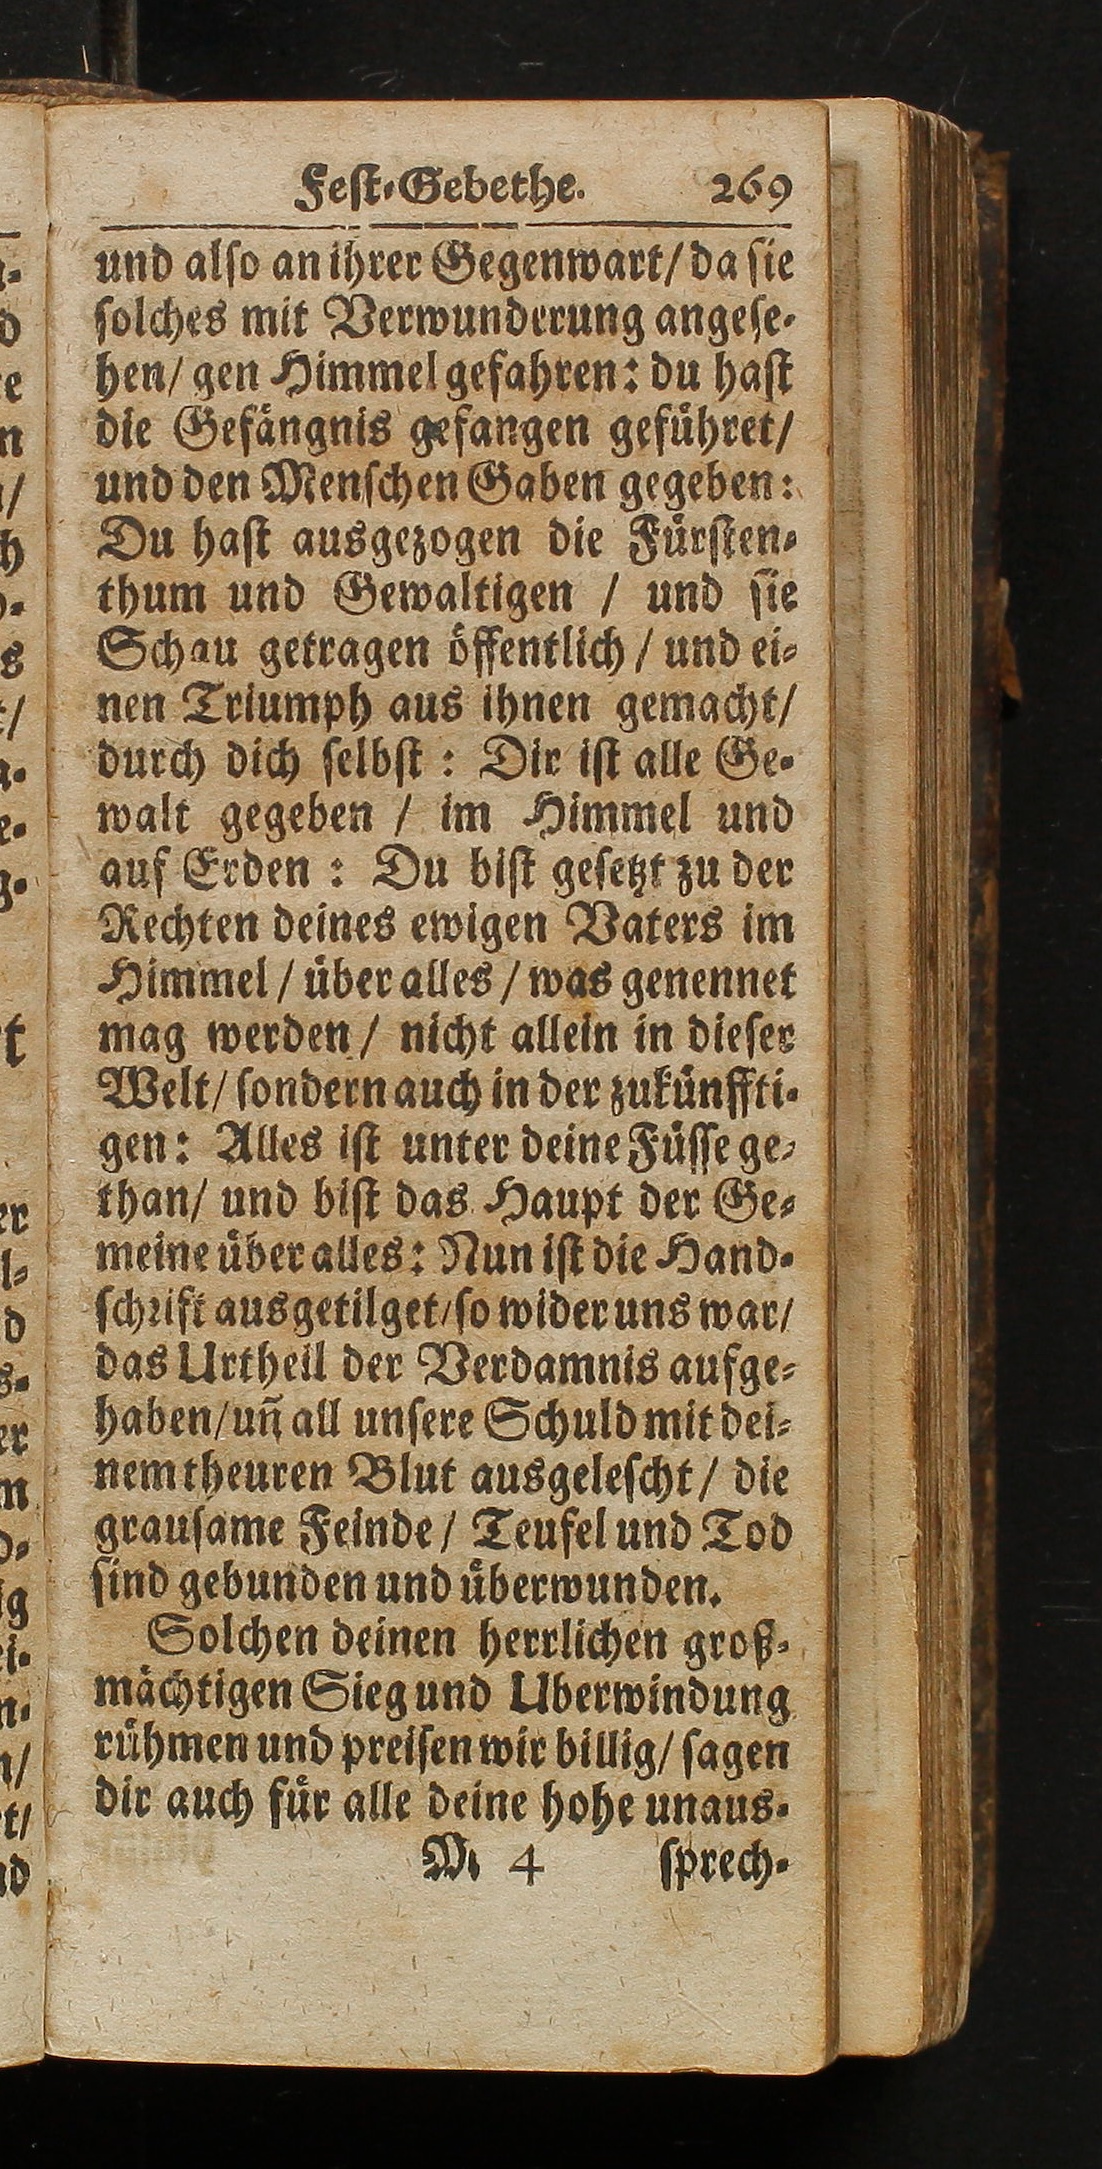 Feſt-Gebethe. 269
und alſo an ihrer Gegenwart/ da ſie
ſolches mit Verwunderung angeſe-
hen/ gen Himmel gefahren: du haſt
die Gefängnis gefangen geführet/
und den Menſchen Gaben gegeben:
Du haſt ausgezogen die Fürſten-
thum und Gewaltigen / und ſie
Schau getragen öffentlich / und ei-
nen Triumph aus ihnen gemacht/
durch dich ſelbſt : Dir iſt alle Ge-
walt gegeben / im Himmel und
auf Erden : Du biſt geſetzt zu der
Rechten deines ewigen Vaters im
Himmel / über alles / was genennet
mag werden / nicht allein in dieſer
Welt/ ſondern auch in der zukünffti-
gen: Alles iſt unter deine Füſſe ge-
than/ und biſt das Haupt der Ge-
meine über alles: Nun iſt die Hand-
ſchrift ausgetilget/ſo wider uns war/
das Urtheil der Verdamnis aufge-
haben/uñ all unſere Schuld mit dei-
nem theuren Blut ausgeleſcht / die
grauſame Feinde / Teufel und Tod
ſind gebunden und überwunden.
Solchen deinen herrlichen groß-
mächtigen Sieg und Uberwindung
rühmen und preiſen wir billig/ ſagen
dir auch für alle deine hohe unaus-
M 4 ſprech-